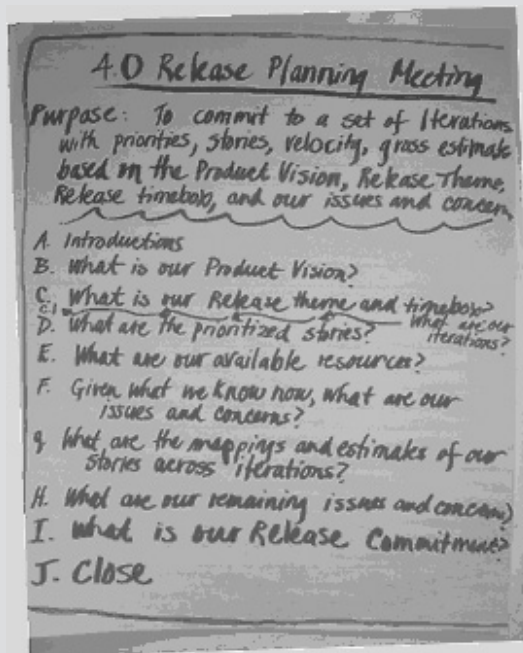 4.0 Release Planning Meeting
Purpose: To commit to a set of Iterations
with priorities, stories, velocity, gross estimate
based on the Product Vision, Release Theme,
Release timebox, and our issues and concern
A. Introductions
B. What is our Product Vision?
C. What is our Release theme and timebox?
C.1 What are our
iterations?
D. What are the prioritized stories?
E. What are our available resources?
F. Given what we know now, what are our
issues and concerns?
g What are the mappings and estimates of our
stories across iterations?
H. What are our remaining issues and concerns?
I. What is our Release Commitment?
J. Close